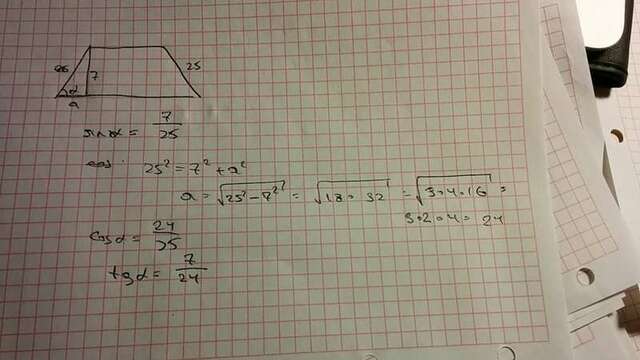 25
25
7
α
a
sin α = 7/25
cos 25² = 7² + a²
a = √(25² - 7²) = √(18 · 32) = √(3 · 4 · 16) =
3 · 2 · 4 = 24
cos α = 24/25
tg α = 7/24